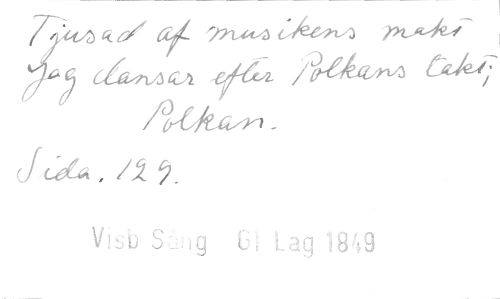 Tjusad af musikens makt
Jag dansar efter Polkans takt;
Polkan.
Sida. 129.
Visb Sång Gl Lag 1849